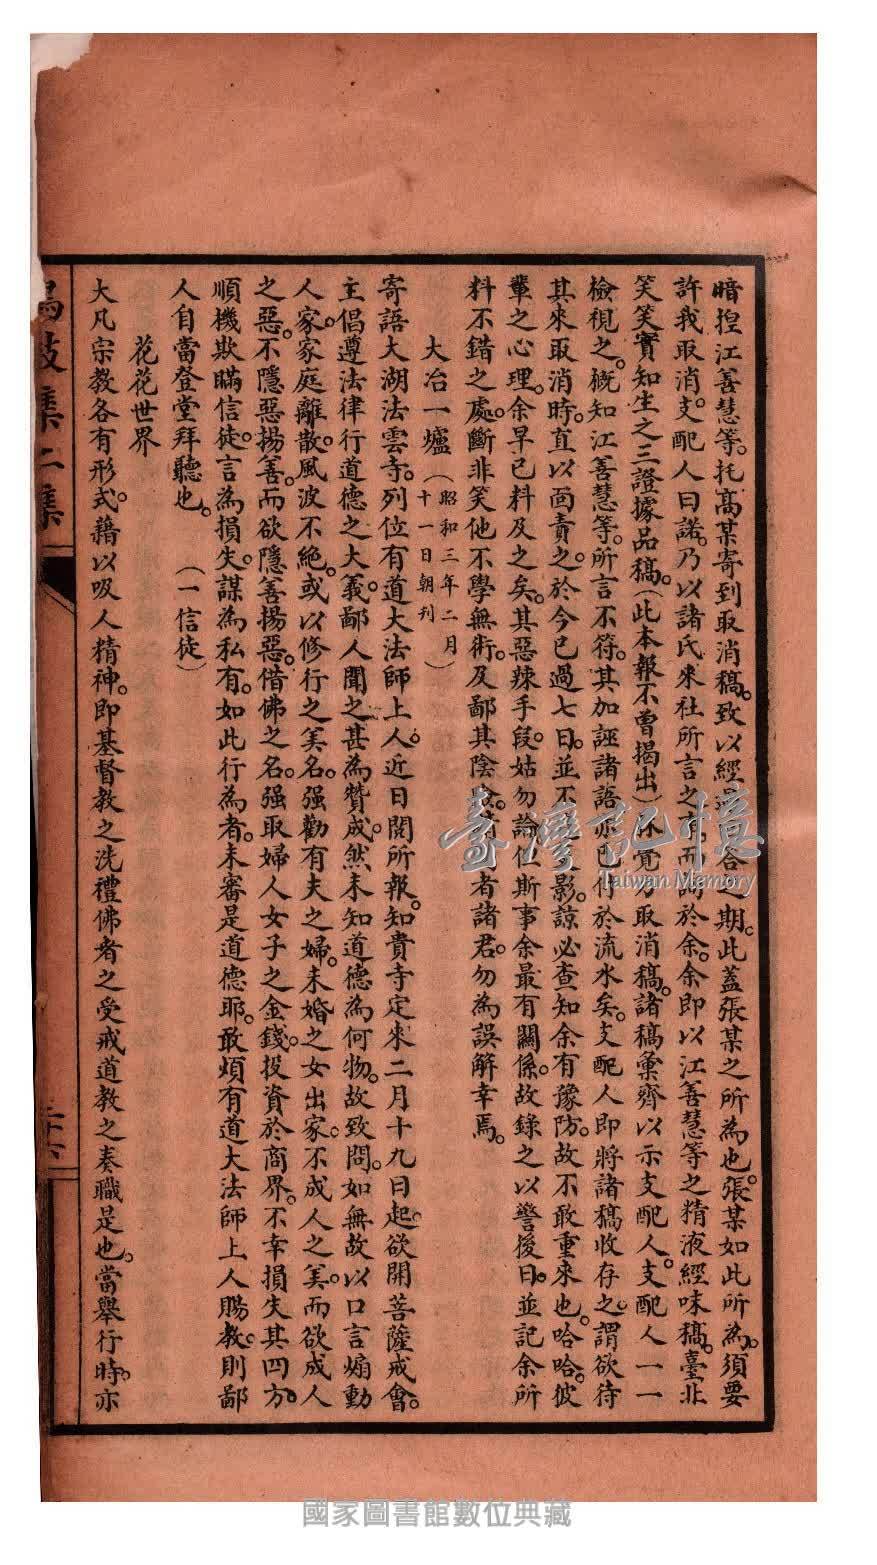 暗揑江善慧等。托高某寄到取消稿。致以經 期。此蓋張某之所為也。張某如此所為。須要
許我取消。支配人曰諾。乃以諸氏來社所言之 而 於余。余即以江善慧等之精液經味稿。臺北
笑笑實知生之三證據品稿。(此本報不曾揭出) 取消稿。諸稿彙齊以示支配人。支配人一一
檢視之。概知江善慧等。所言不符。其加誣諸語。 於流水矣。支配人即將諸稿收存之。謂欲待
其來取消時。直以面責之。於今已過七日。並不 影。諒必查知余有豫防。故不敢重來也。哈哈。彼
輩之心理。余早已料及之矣。其惡辣手段。姑勿論 斯事余最有關係。故錄之以警後日。並記余所
料不錯之處。斷非笑他不學無術。及鄙其陰 者諸君。勿為誤解幸焉。
大冶一爐(昭和三年二月十一日朝刊)
寄語大湖法雲寺。列位有道大法師上人。近日閱所報。知貴寺定來二月十九日起。欲開菩薩戒會。
主倡遵法律行道德之大義。鄙人聞之甚為贊成。然未知道德為何物。故致問。如無故以口言煽動
人家。家庭離散。風波不絕。或以修行之美名。强勸有夫之婦。未婚之女出家。不成人之美。而欲成人
之惡。不隱惡揚善。而欲隱善揚惡。借佛之名。强取婦人女子之金錢。投資於商界。不幸損失其四方。
順機欺瞞信徒。言為損失。謀為私有。如此行為者。未審是道德耶。敢煩有道大法師上人賜教。則鄙
人自當登堂拜聽也。(一信徒)
花花世界
大凡宗教各有形式。藉以吸人精神。即基督教之洗禮佛者之受戒道教之奏職是也。當舉行時。亦
鳴鼓集二集
臺灣記憶
Taiwan Memory
國家圖書館數位典藏